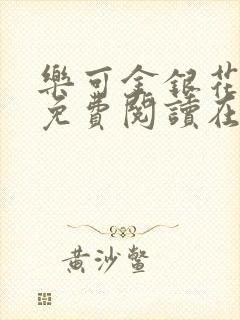 樂可金銀花
免費閱讀在
黃沙鱉